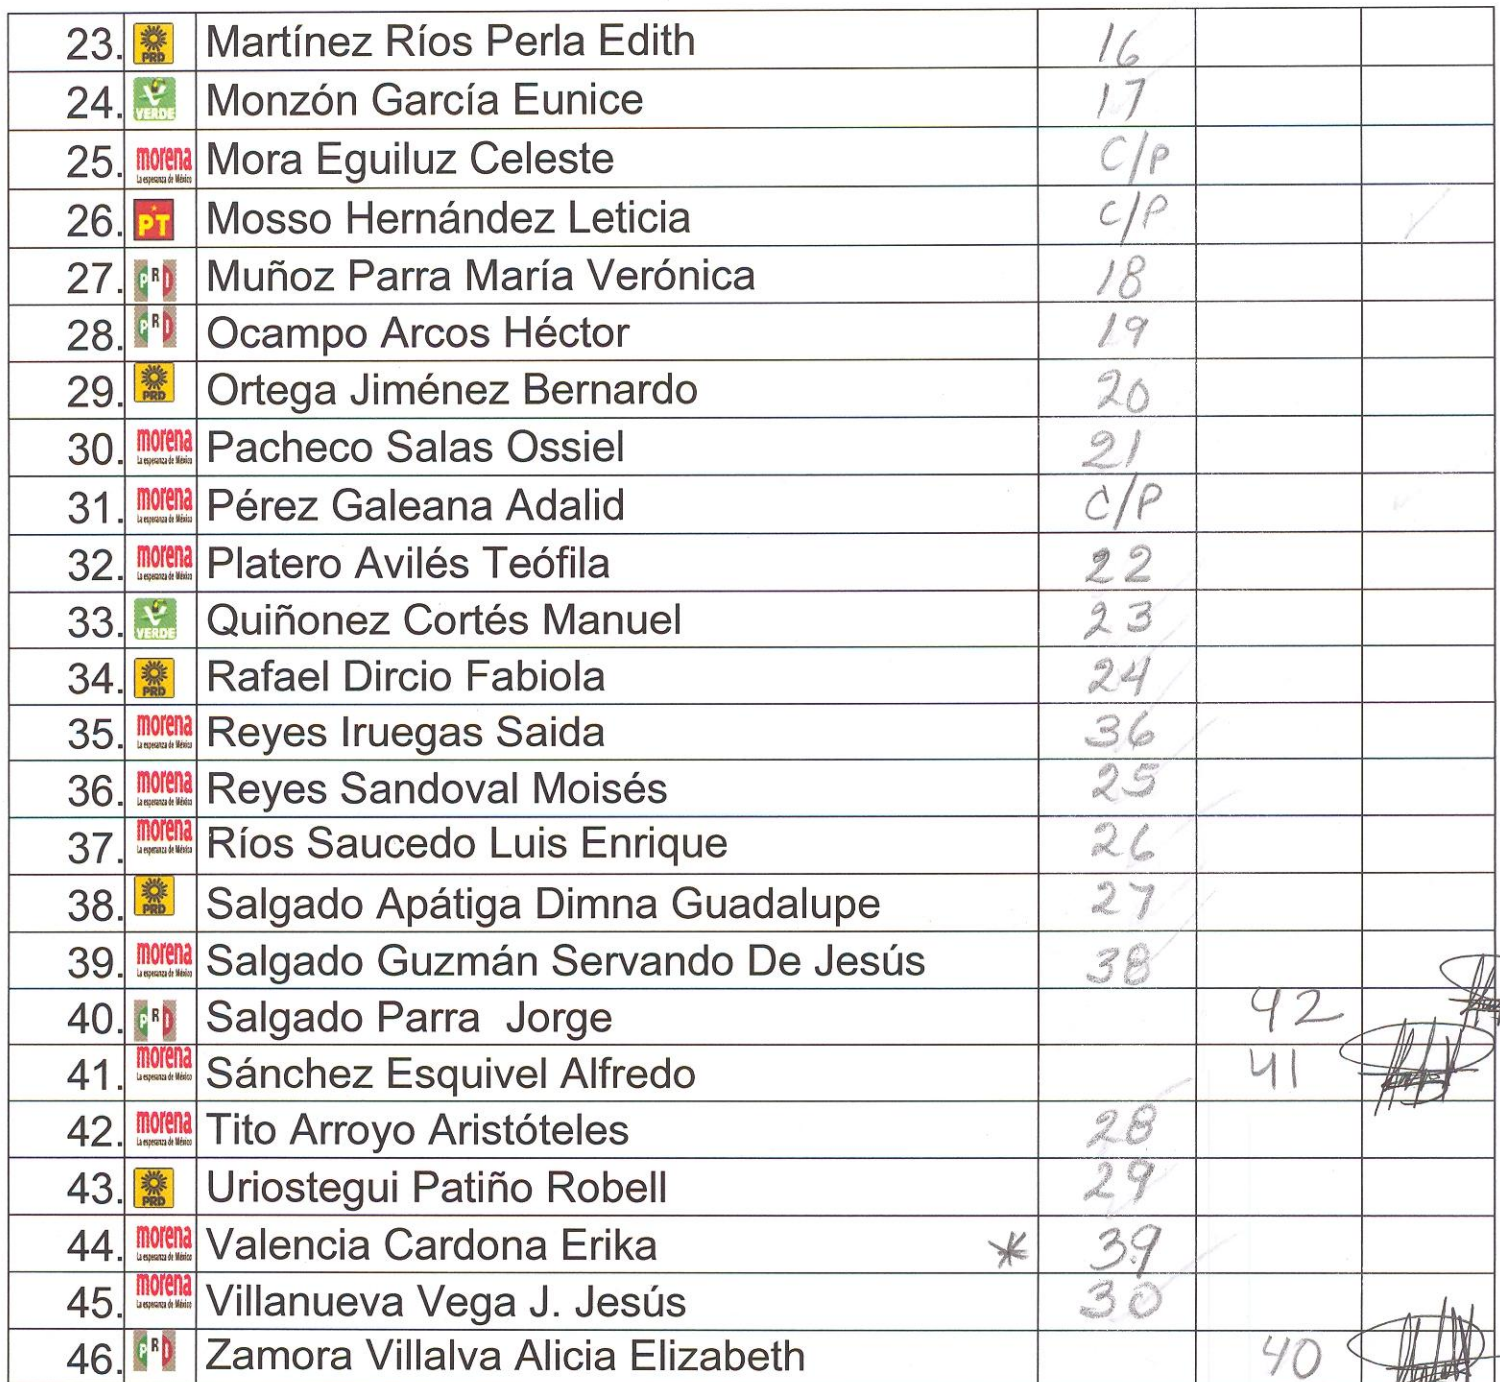 23. PRD Martínez Ríos Perla Edith 16
24. VERDE Monzón García Eunice 17
25. morena La esperanza de México Mora Eguiluz Celeste C/P
26. PT Mosso Hernández Leticia C/P
27. PRI Muñoz Parra María Verónica 18
28. PRI Ocampo Arcos Héctor 19
29. PRD Ortega Jiménez Bernardo 20
30. morena La esperanza de México Pacheco Salas Ossiel 21
31. morena La esperanza de México Pérez Galeana Adalid C/P
32. morena La esperanza de México Platero Avilés Teófila 22
33. VERDE Quiñonez Cortés Manuel 23
34. PRD Rafael Dircio Fabiola 24
35. morena La esperanza de México Reyes Iruegas Saida 36
36. morena La esperanza de México Reyes Sandoval Moisés 25
37. morena La esperanza de México Ríos Saucedo Luis Enrique 26
38. PRD Salgado Apátiga Dimna Guadalupe 27
39. morena La esperanza de México Salgado Guzmán Servando De Jesús 38
40. PRI Salgado Parra Jorge 42
41. morena La esperanza de México Sánchez Esquivel Alfredo 41
42. morena La esperanza de México Tito Arroyo Aristóteles 28
43. PRD Uriostegui Patiño Robell 29
44. morena La esperanza de México Valencia Cardona Erika * 39
45. morena La esperanza de México Villanueva Vega J. Jesús 30
46. PRI Zamora Villalva Alicia Elizabeth 40